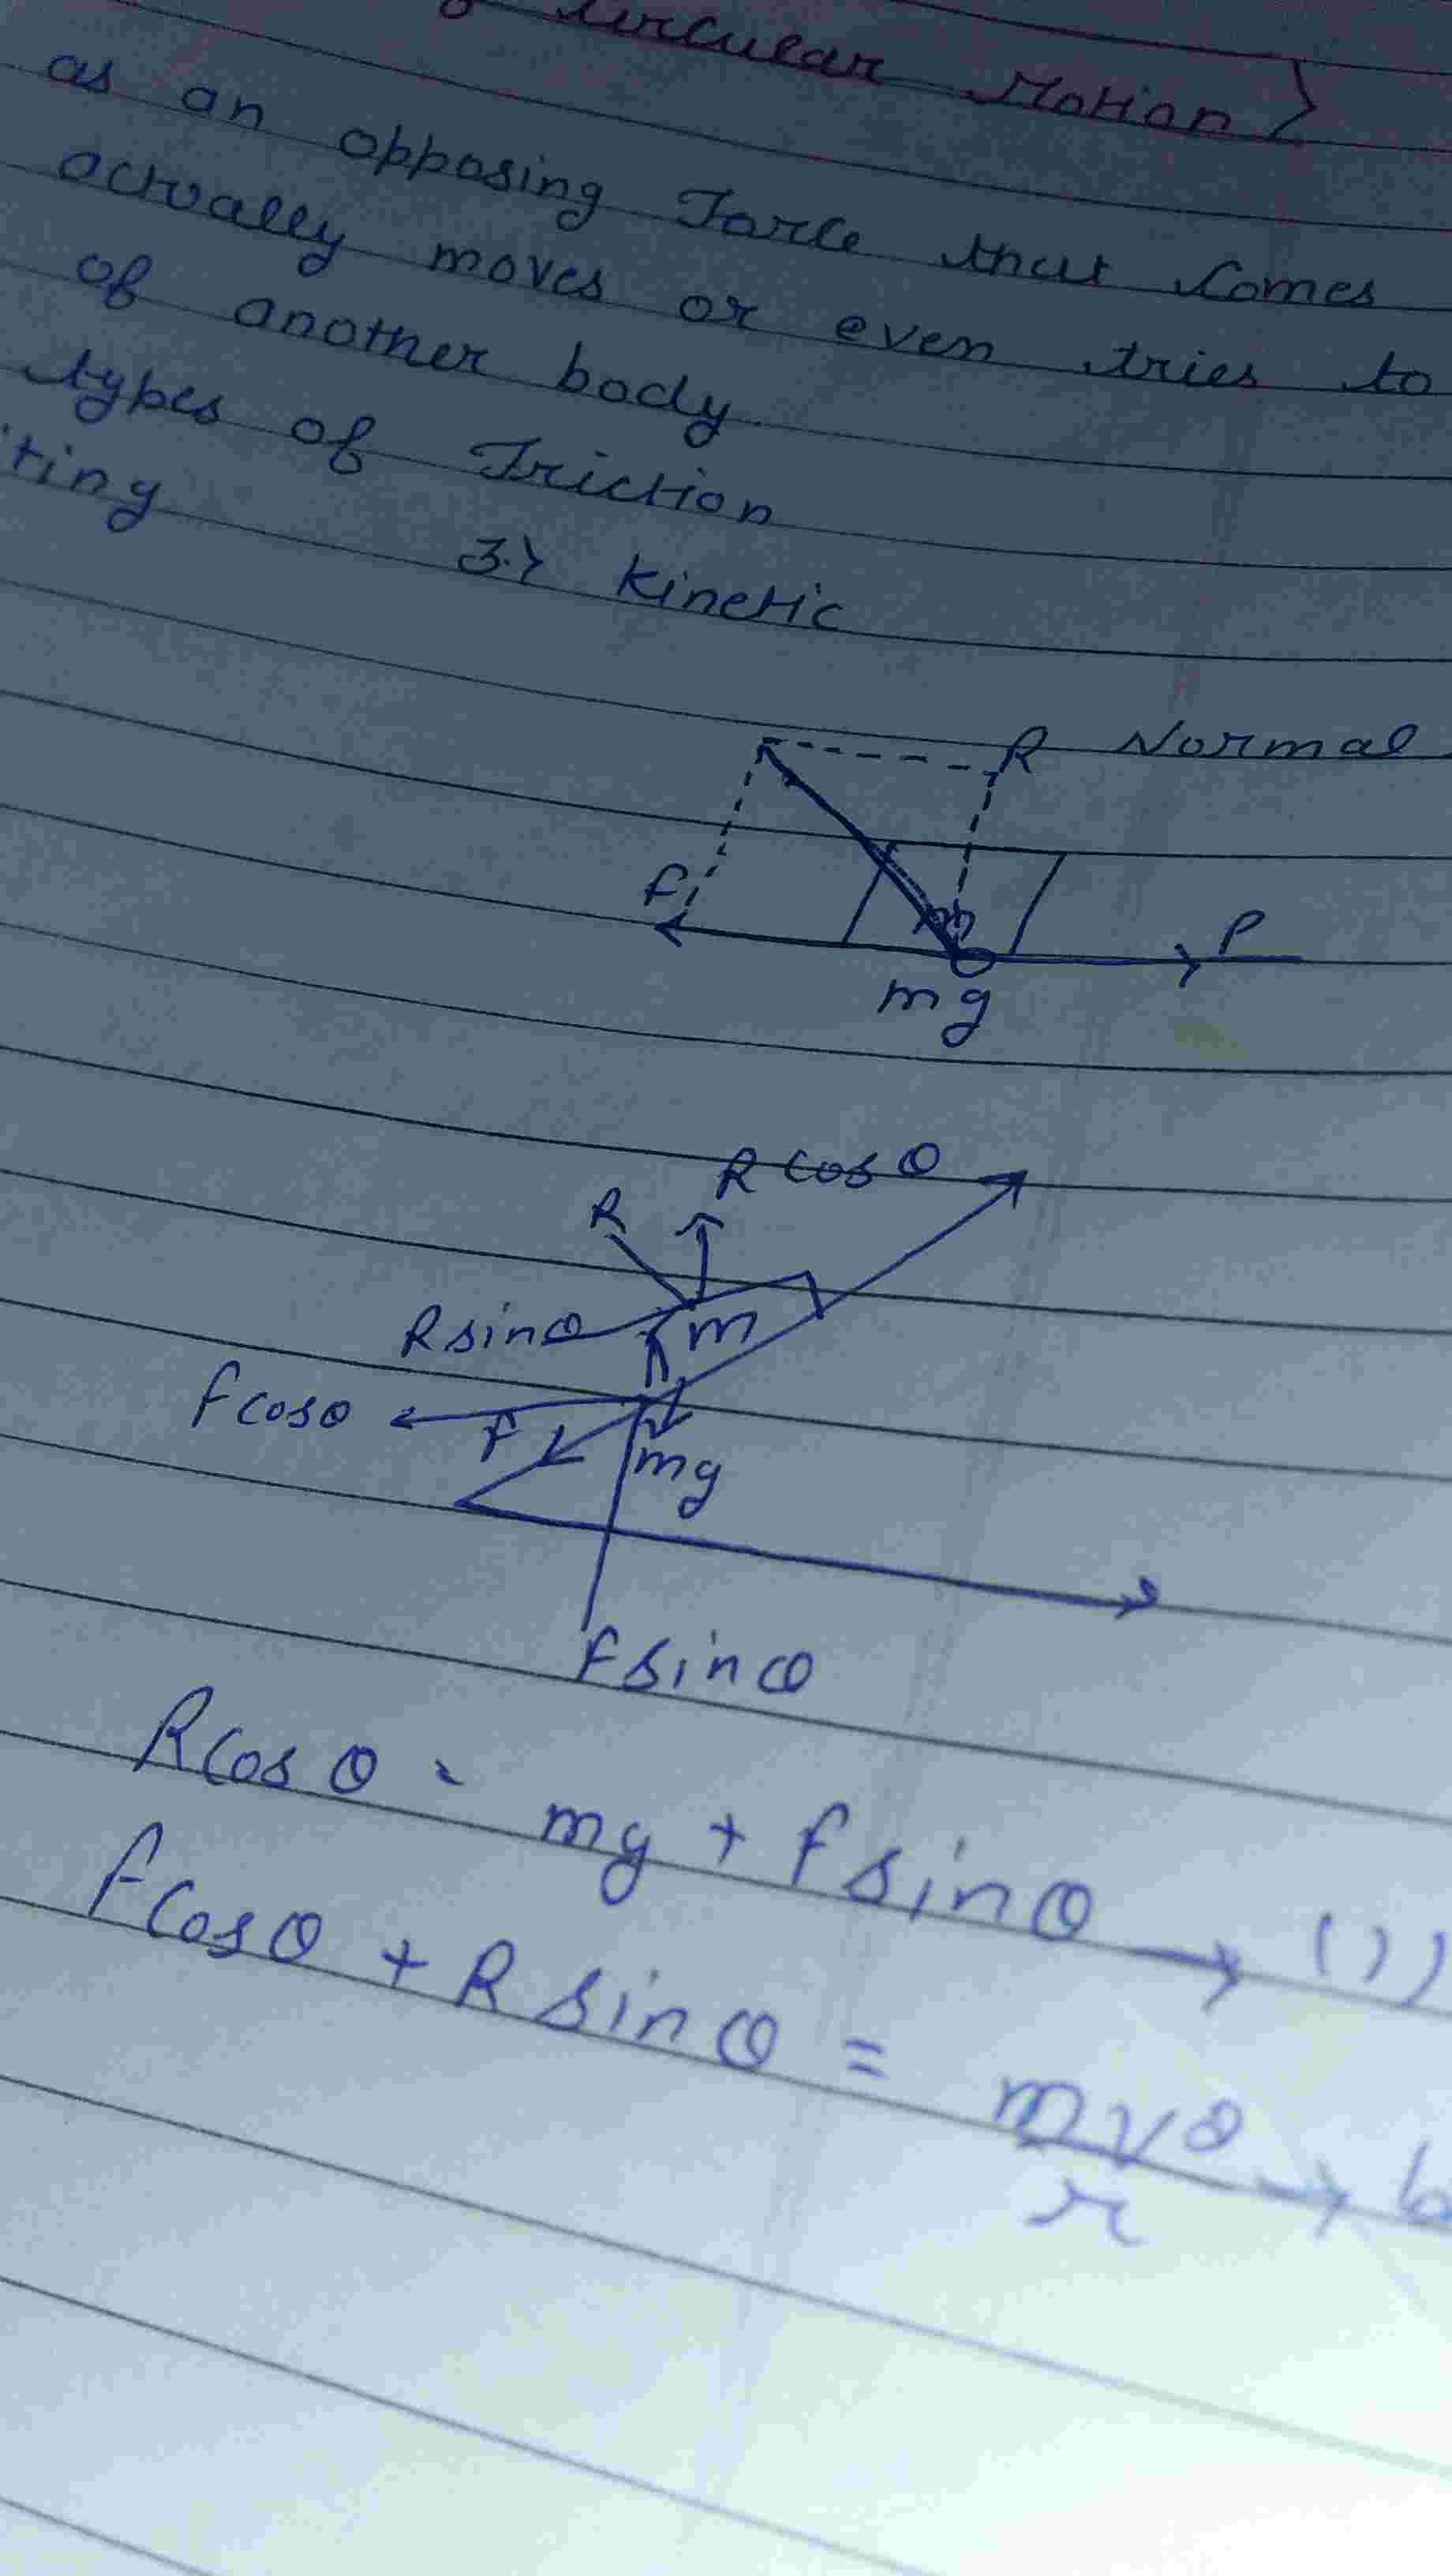 Circular Motion>
as an opposing Force that Comes
actually moves or even tries to
of another body
types of Friction
ting 3.> Kinetic
R Normal
F
P
mg
R cos θ
R
R sin θ
m
F cos θ
F
mg
F sin θ
R cos θ = mg + F sin θ → (1)
F cos θ + R sin θ = mv²/r →